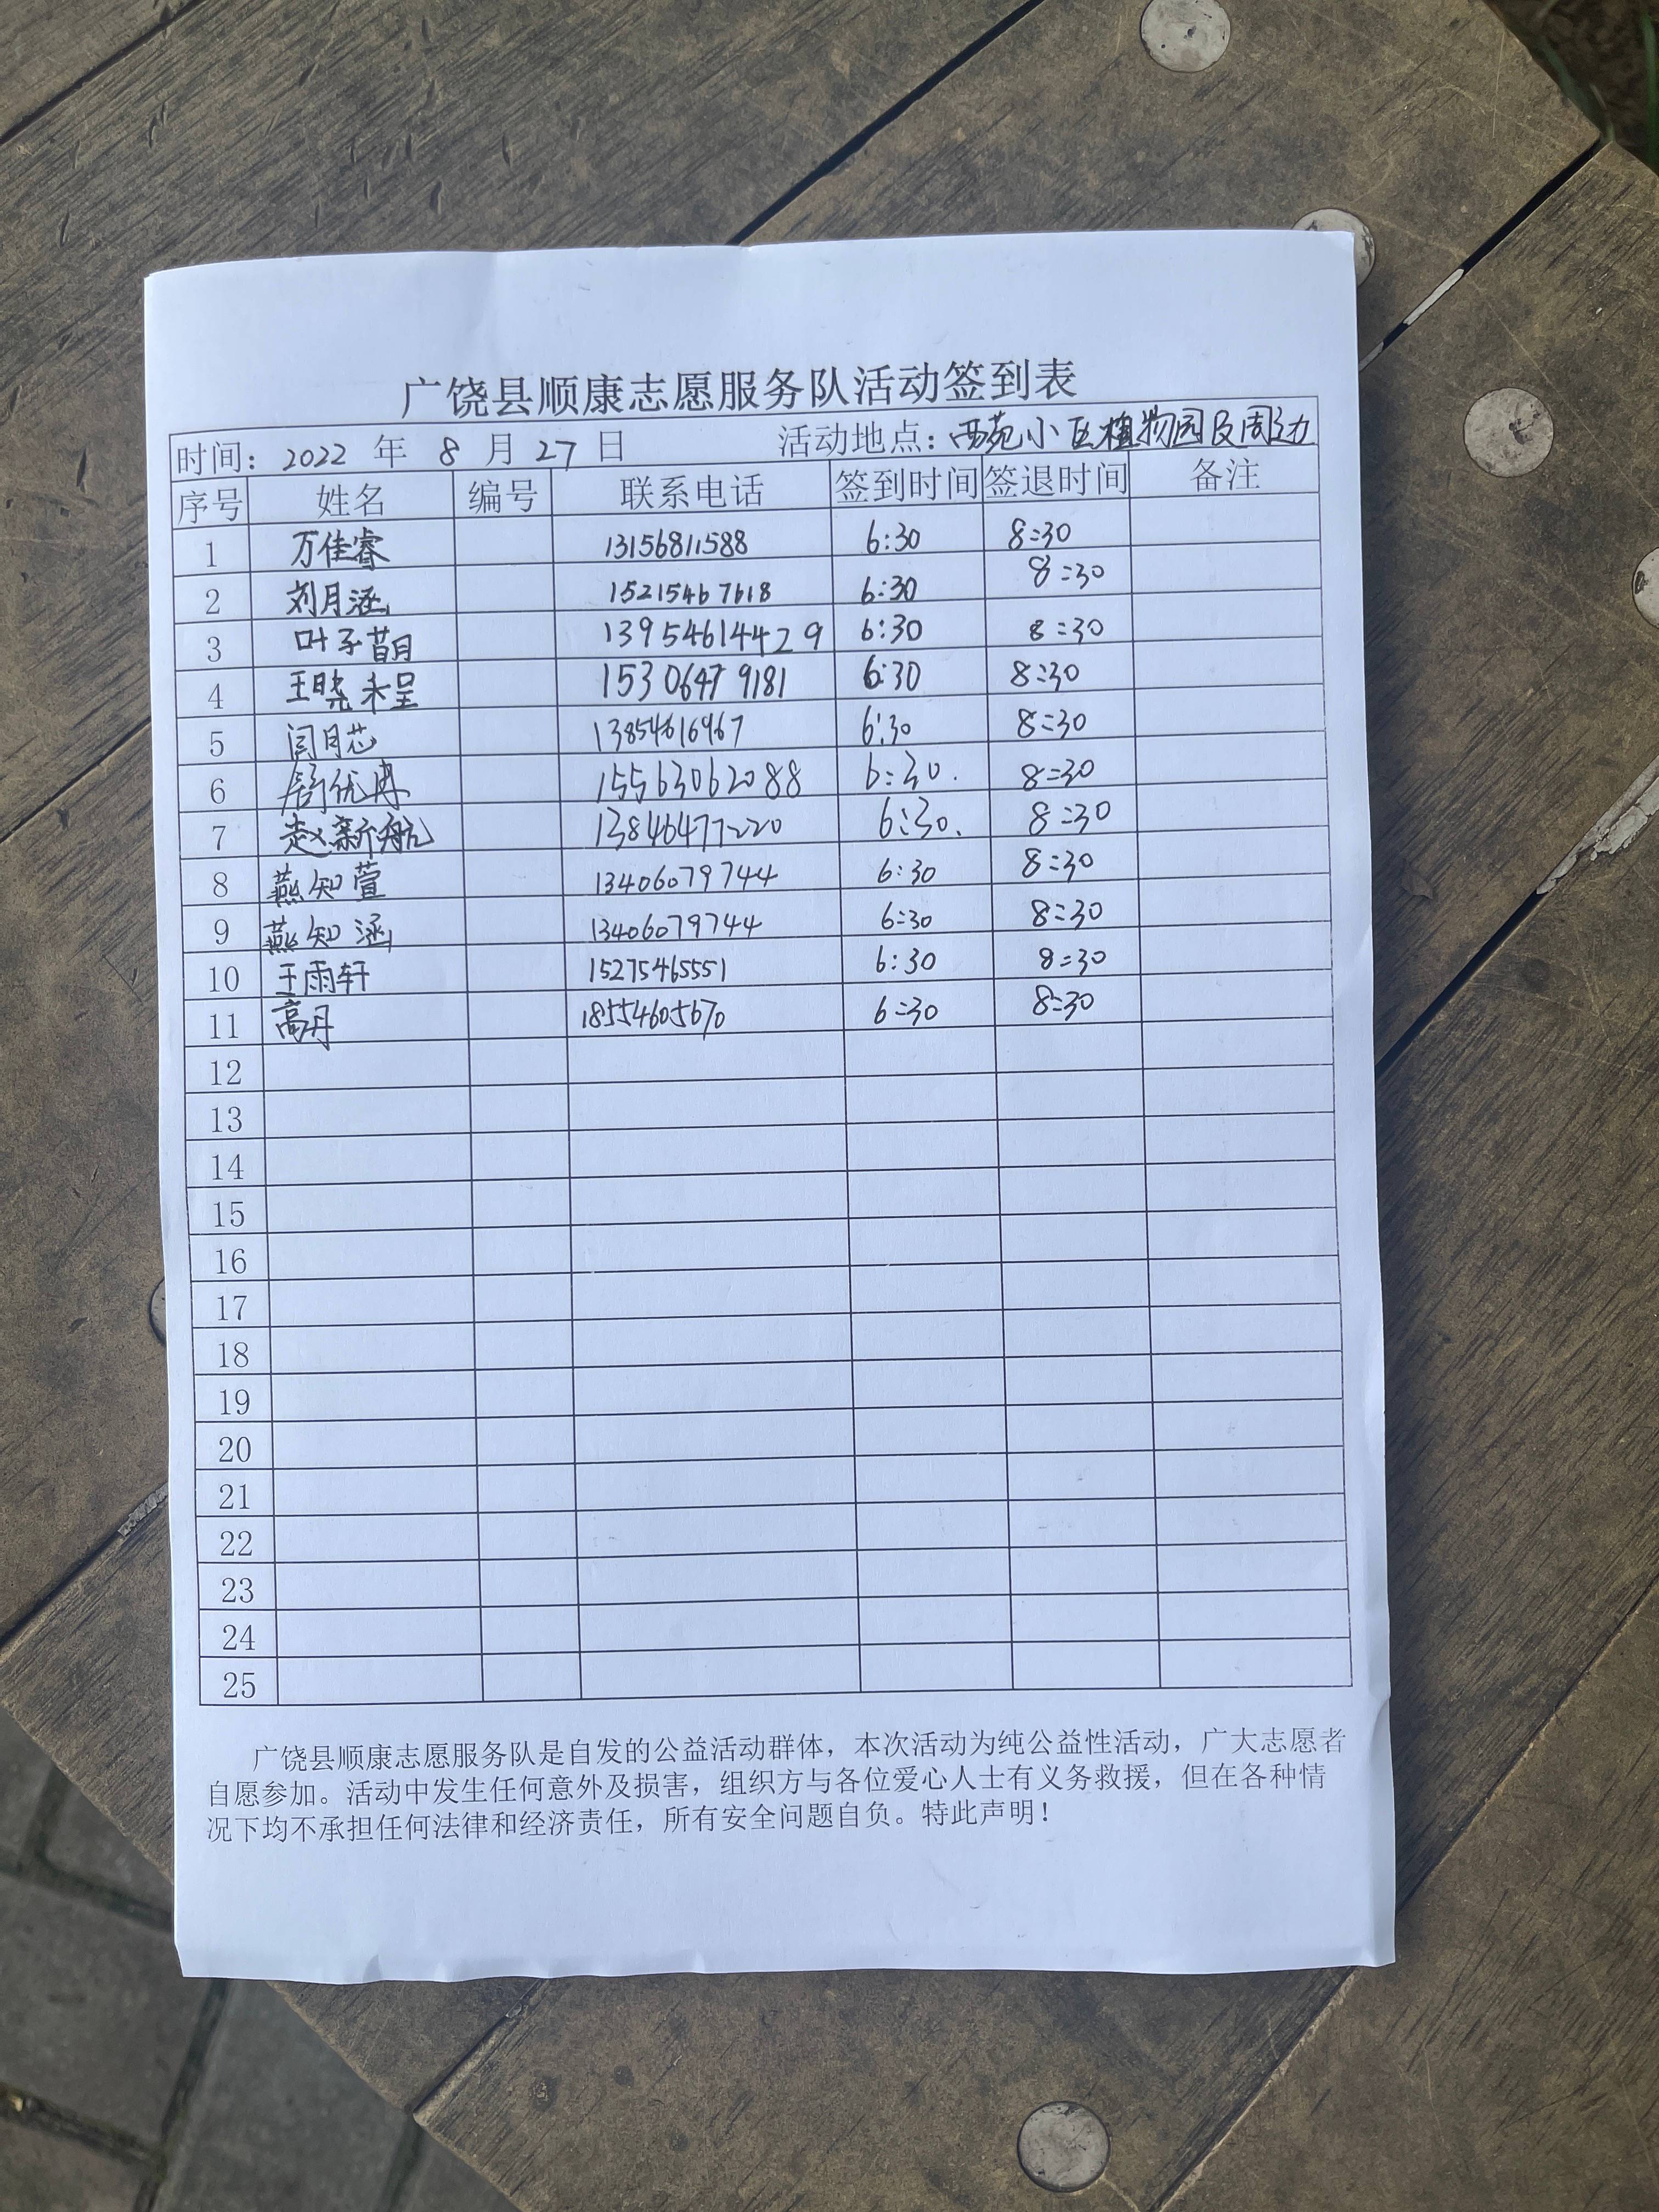 广饶县顺康志愿服务队活动签到表
时间: 2022 年 8 月 27 日 活动地点: 西苑小区植物园及周边
序号 姓名 编号 联系电话 签到时间 签退时间 备注
1 万佳睿 13156811588 6:30 8:30
2 刘月涵 15215467618 6:30 8:30
3 叶子萌 13954614429 6:30 8:30
4 王晓程 15306479181 6:30 8:30
5 闫月芯 13854616967 6:30 8:30
6 优冉 15563062088 6:30. 8:30
7 赵新航 13846477220 6:30. 8:30
8 燕知萱 13406079744 6:30 8:30
9 燕知涵 13406079744 6:30 8:30
10 王雨轩 15275465551 6:30 8:30
11 高丹 18554605670 6:30 8:30
12
13
14
15
16
17
18
19
20
21
22
23
24
25
广饶县顺康志愿服务队是自发的公益活动群体，本次活动为纯公益性活动，广大志愿者
自愿参加。活动中发生任何意外及损害，组织方与各位爱心人士有义务救援，但在各种情
况下均不承担任何法律和经济责任，所有安全问题自负。特此声明！